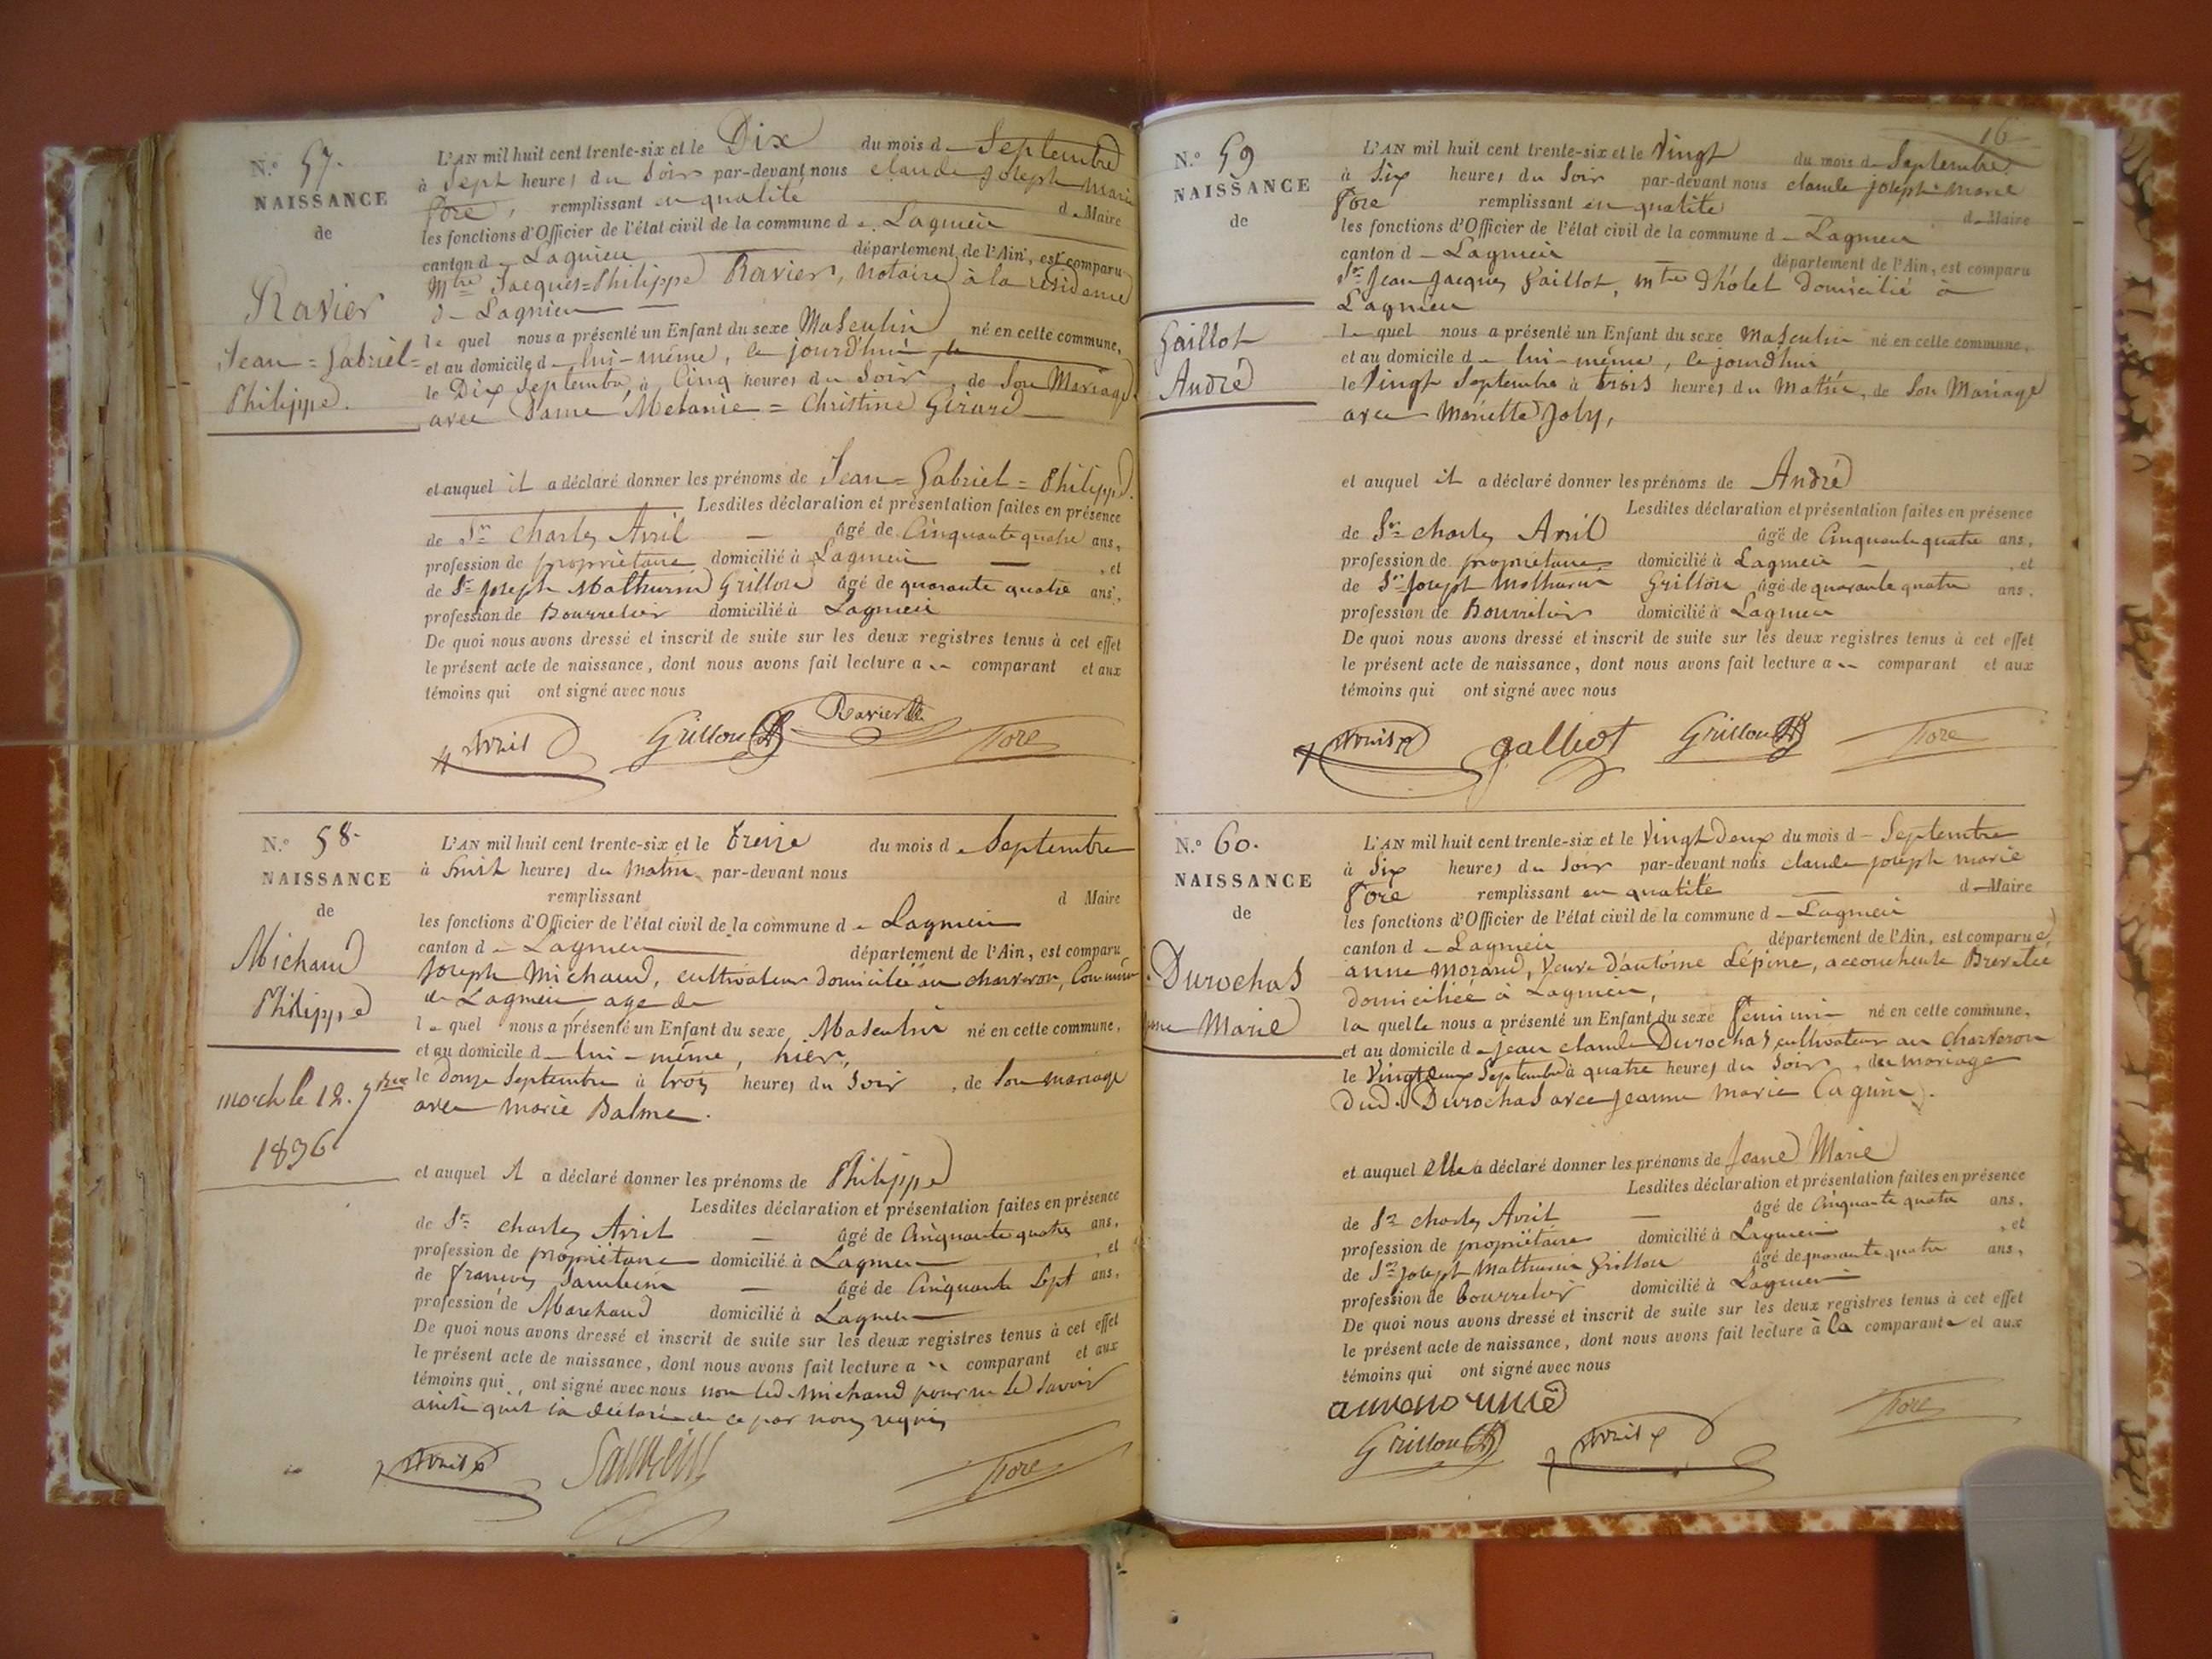 N.o 57.
NAISSANCE
de
Ravier
Jean = Gabriel =
Philippe.
L'AN mil huit cent trente-six et le Dix du mois d e Septembre
à Sept heures du Soir par-devant nous claude joseph Marie
fore, remplissant en qualité d e Maire
les fonctions d'Officier de l'état civil de la commune d e Lagnieu
canton d e Lagnieu département de l'Ain, est comparu
Mtre Jacques=Philippe Ravier, Notaire à la résidence
de Lagnieu
le quel nous a présenté un Enfant du sexe Masculin né en cette commune,
et au domicile d e lui-même, ce jourd'hui
le Dix Septembre, à Cinq heures du Soir, de Son Mariage
avec Dame Mélanie = Christine Girard
et auquel il a déclaré donner les prénoms de Jean = Gabriel = Philippe.
Lesdites déclaration et présentation faites en présence
de Sr charles Avril âgé de Cinquante quatre ans,
profession de propriétaire domicilié à Lagnieu , et
de Sr joseph Mathurin Grillon âgé de quarante quatre ans,
profession de Bourrelier domicilié à Lagnieu
De quoi nous avons dressé et inscrit de suite sur les deux registres tenus à cet effet
le présent acte de naissance, dont nous avons fait lecture a u comparant et aux
témoins qui ont signé avec nous
Ravier
Avril Grillon fore
N.o 58.
NAISSANCE
de
Michaud
Philippe
mort le 12. 7bre
1836
L'AN mil huit cent trente-six et le treize du mois d e Septembre
à huit heures du matin par-devant nous
remplissant d Maire
les fonctions d'Officier de l'état civil de la commune d e Lagnieu
canton d e Lagnieu département de l'Ain, est comparu
joseph Michaud, cultivateur domicilié au charveron, Commune
de Lagnieu age de
le quel nous a présenté un Enfant du sexe Masculin né en cette commune,
et au domicile d e lui-même, hier,
le douze Septembre à trois heures du Soir, de Son mariage
avec marie Balme.
et auquel il a déclaré donner les prénoms de Philippe
Lesdites déclaration et présentation faites en présence
de Sr charles Avril âgé de Cinquante quatre ans,
profession de propriétaire domicilié à Lagnieu , et
de françois âgé de Cinquante Sept ans,
profession de Marchand domicilié à Lagnieu
De quoi nous avons dressé et inscrit de suite sur les deux registres tenus à cet effet
le présent acte de naissance, dont nous avons fait lecture a u comparant et aux
témoins qui ont signé avec nous non led. michaud pour ne le Savoir
ainsi qu'il l'a déclaré de ce par nous requis
Avril fore
16
N.o 59
NAISSANCE
de
Gaillot
André
L'AN mil huit cent trente-six et le Vingt du mois d e Septembre
à Six heures du Soir par-devant nous claude joseph Marie
fore remplissant en qualité d e Maire
les fonctions d'Officier de l'état civil de la commune d e Lagnieu
canton d e Lagnieu département de l'Ain, est comparu
Sr Jean Jacques Gaillot, mtre d'hôtel domicilié à
Lagnieu
le quel nous a présenté un Enfant du sexe Masculin né en cette commune,
et au domicile d e lui-même, ce jourd'hui
le Vingt Septembre à trois heures du Matin, de Son Mariage
avec Mariette Joly,
et auquel il a déclaré donner les prénoms de André
Lesdites déclaration et présentation faites en présence
de Sr charles Avril âgé de Cinquante quatre ans,
profession de propriétaire domicilié à Lagnieu , et
de Sr joseph Mathurin Grillon âgé de quarante quatre ans,
profession de Bourrelier domicilié à Lagnieu
De quoi nous avons dressé et inscrit de suite sur les deux registres tenus à cet effet
le présent acte de naissance, dont nous avons fait lecture a u comparant et aux
témoins qui ont signé avec nous
Avril galliot Grillon fore
N.o 60.
NAISSANCE
de
Durochas
Marie
L'AN mil huit cent trente-six et le Vingt deux du mois d e Septembre
à Six heures du Soir par-devant nous claude joseph marie
fore remplissant en qualité d e Maire
les fonctions d'Officier de l'état civil de la commune d e Lagnieu
canton d e Lagnieu département de l'Ain, est comparue
anne Morand, Veuve d'antoine Lépine, accoucheuse Brevetée
domiciliée à Lagnieu,
la quelle nous a présenté un Enfant du sexe féminin né en cette commune,
et au domicile d e jean claude Durochas cultivateur au charveron
le Vingt deux Septembre à quatre heures du Soir, du mariage
dud. Durochas avec jeanne marie Caguin.
et auquel Elle a déclaré donner les prénoms de Jeane Marie
Lesdites déclaration et présentation faites en présence
de Sr charles Avril âgé de Cinquante quatre ans,
profession de propriétaire domicilié à Lagnieu , et
de Sr joseph Mathurin Grillon âgé de quarante quatre ans,
profession de bourrelier domicilié à Lagnieu
De quoi nous avons dressé et inscrit de suite sur les deux registres tenus à cet effet
le présent acte de naissance, dont nous avons fait lecture à la comparante et aux
témoins qui ont signé avec nous
fore
Grillon Avril